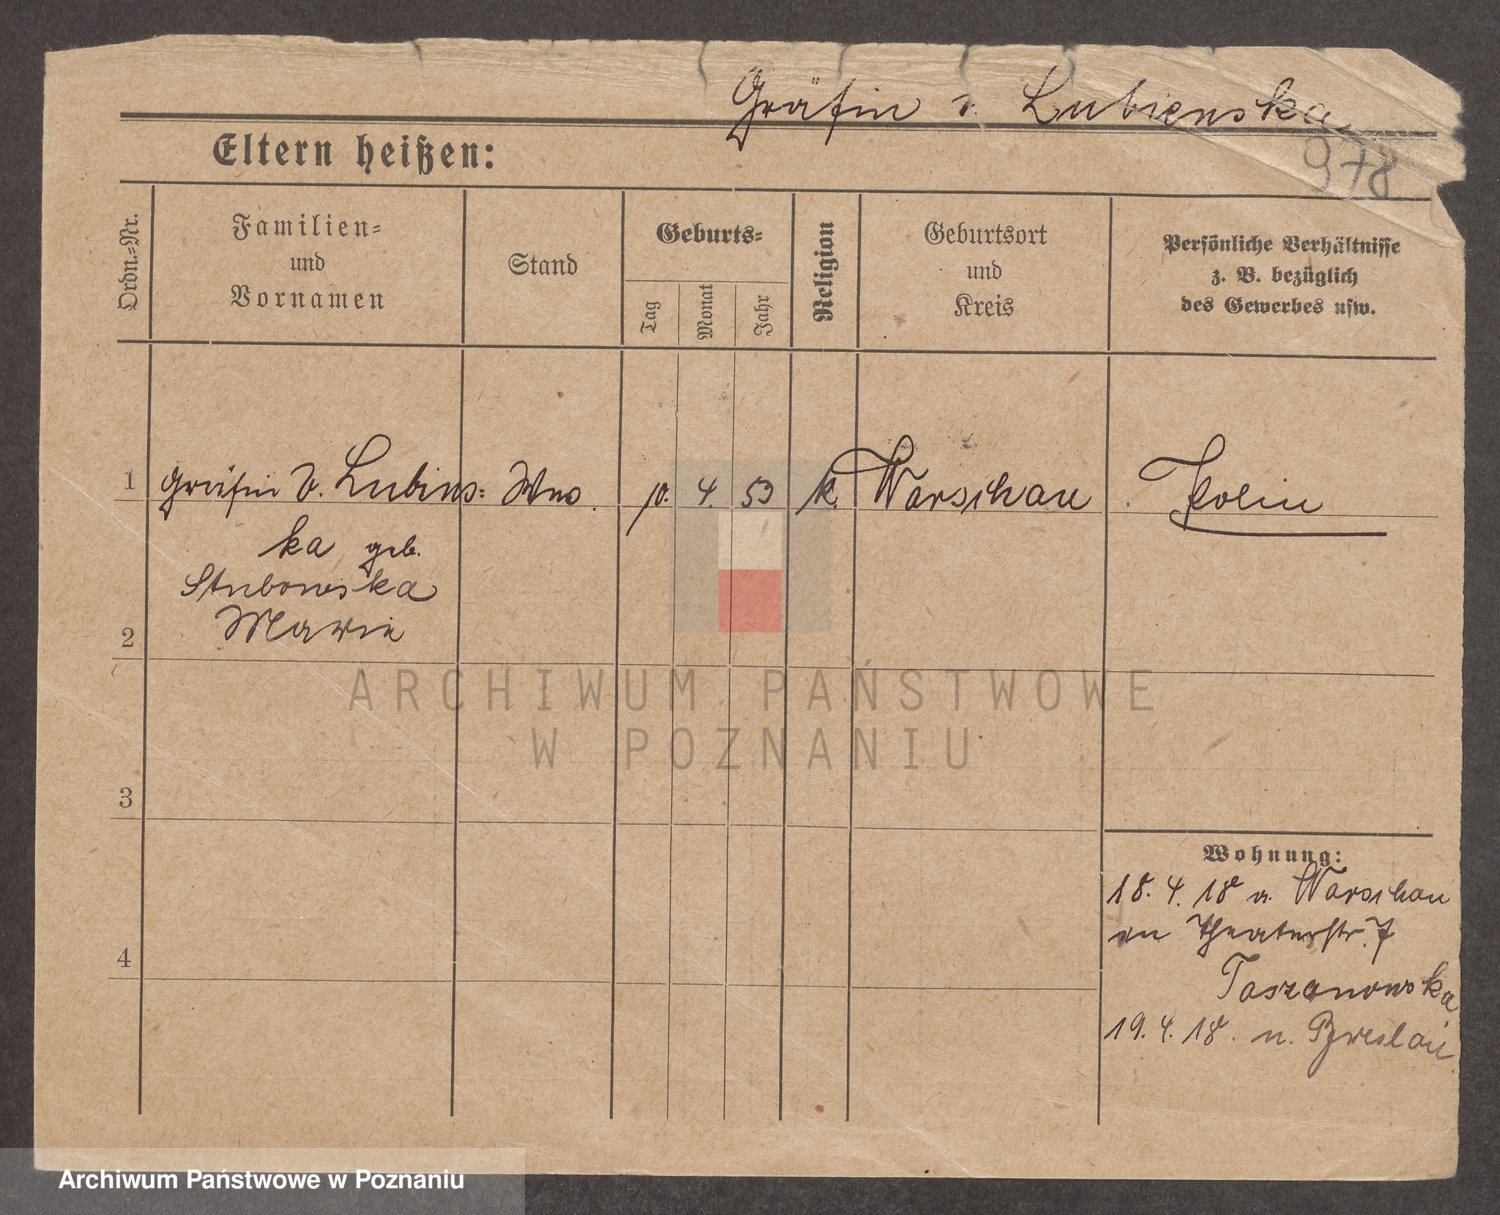 Gräfin v. Lubienska
978
Eltern heißen:
Ordn.-Nr.
Familien-
und
Vornamen
Stand
Geburts-
Tag
Monat
Jahr
Religion
Geburtsort
und
Kreis
Persönliche Verhältnisse
z. B. bezüglich
des Gewerbes usw.
1 Gräfin v. Lubins- Ww. 10. 4. 53 k. Warschau Polin
ka geb.
Stubowska
Marie
2
ARCHIWUM PAŃSTWOWE
W POZNANIU
3
Wohnung:
18. 4. 18 a. Warschau
Theaterstr. 7
4
Taszanowska
19. 4. 18. n. Breslau
Archiwum Państwowe w Poznaniu